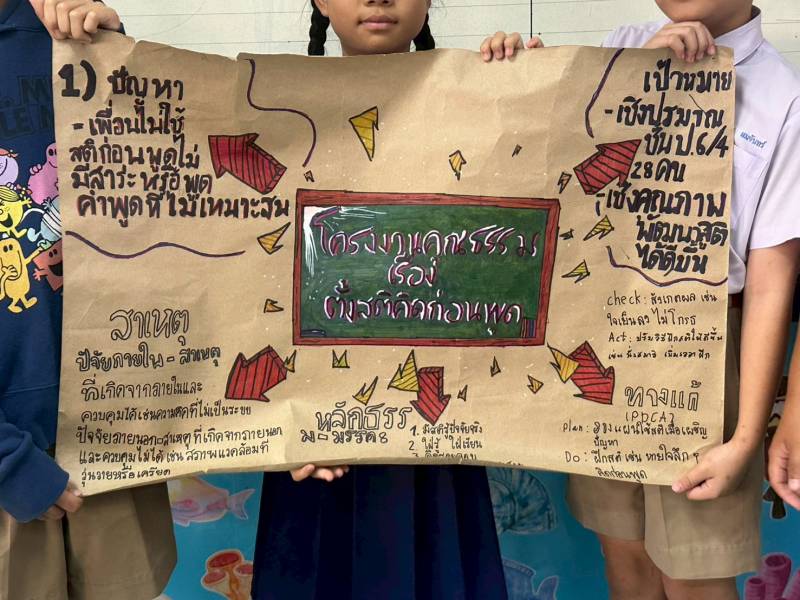 1) ปัญหา
- เพื่อนไม่ใช้
สติก่อนพูดไม่
มีสาระหรือพูด
คำพูดที่ไม่เหมาะสม
โครงงานคุณธรรม
เรื่อง
ตั้งสติคิดก่อนพูด
เป้าหมาย
- เชิงปริมาณ
ชั้น ป.6/4
28 คน
- เชิงคุณภาพ
พัฒนาสติ
ได้ดีขึ้น
สาเหตุ
ปัจจัยภายใน - สาเหตุ
ที่เกิดจากภายในและ
ควบคุมได้ เช่น ความคิดที่ไม่เป็นระยย
ปัจจัยภายนอก-สาเหตุที่เกิดจากภายนอก
และควบคุมไม่ได้ เช่น สภาพแวดล้อมที่
วุ่นวายหรือเครียด
หลักธรรม
มรรค 8
1. มีสติรู้ปัจจุบัน
2. ใฝ่รู้ ใฝ่เรียน
3.
check : สังเกตผล เช่น
ใจเย็นลง ไม่โกรธ
Act : ปรับวิธีฝึกสติให้ดีขึ้น
เช่น นั่งสมาธิ
ทางแก้
(PDCA)
plan : วางแผนใช้สติเมื่อเผชิญ
ปัญหา
Do : ฝึกสติ เช่น หายใจลึก ๆ
คิดก่อนพูด